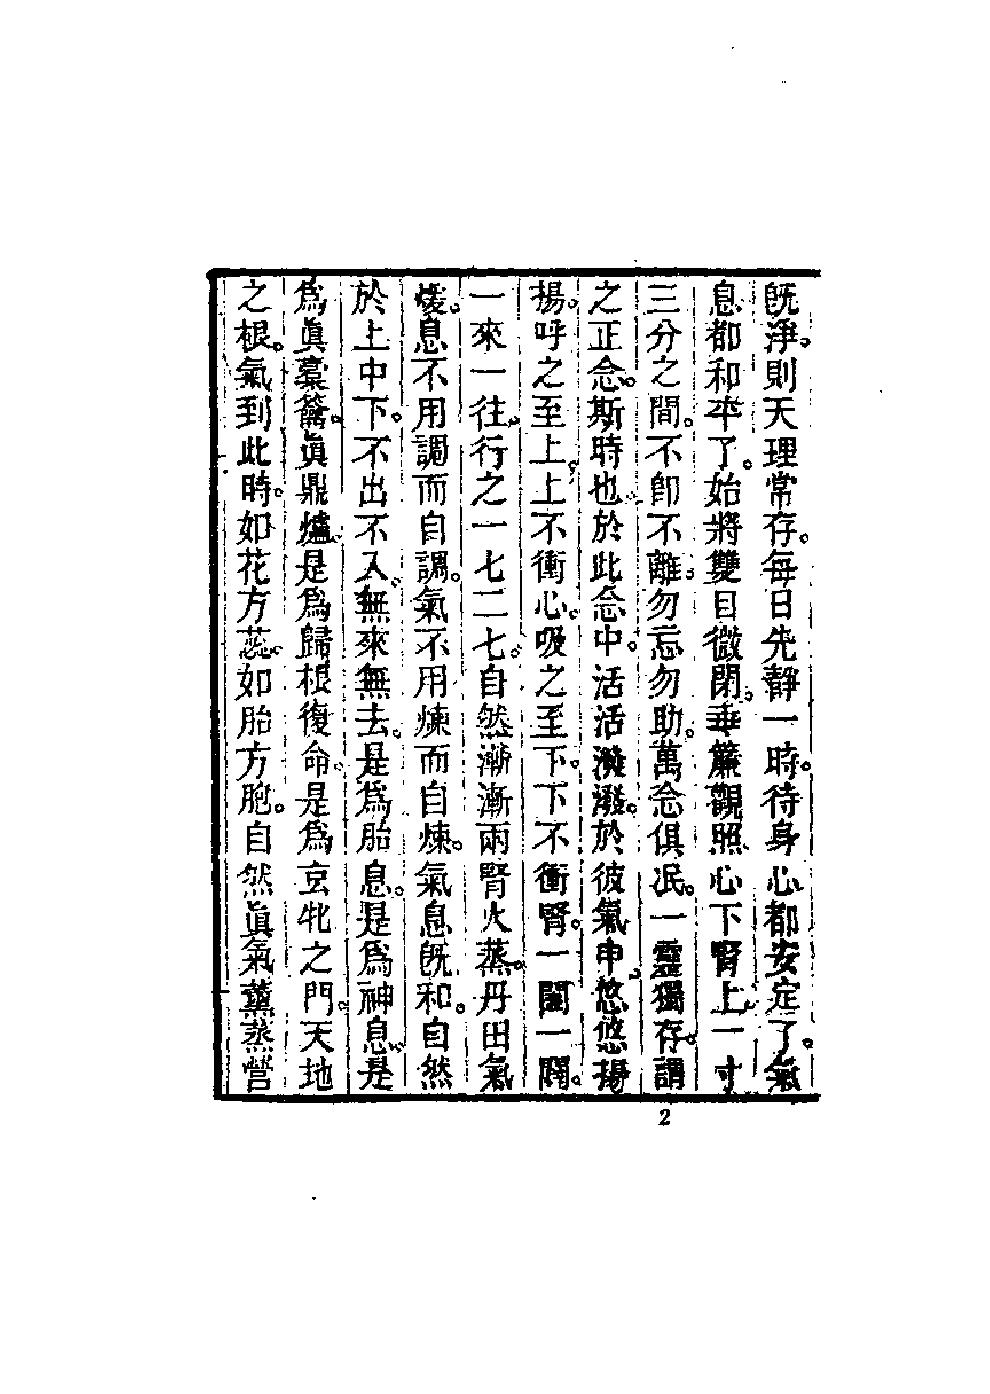 既淨。則天理常存。每日先靜一時。待身心都安定了。氣
息都和平了。始將雙目微閉。垂簾觀照心下腎上一寸
三分之間。不卽不離。勿忘勿助。萬念俱泯。一靈獨存。謂
之正念。斯時也。於此念中。活活潑潑。於彼氣中。悠悠揚
揚。呼之至上。上不衝心。吸之至下。下不衝腎。一闔一闢。
一來一往。行之一七二七。自然漸漸兩腎火蒸。丹田氣
煖。息不用調而自調。氣不用煉而自煉。氣息旣和。自然
於上中下。不出不入。無來無去。是爲胎息。是爲神息。是
爲眞橐籥。眞鼎爐。是爲歸根復命。是爲玄牝之門。天地
之根。氣到此時。如花方蕊。如胎方胞。自然眞氣薰蒸營
2